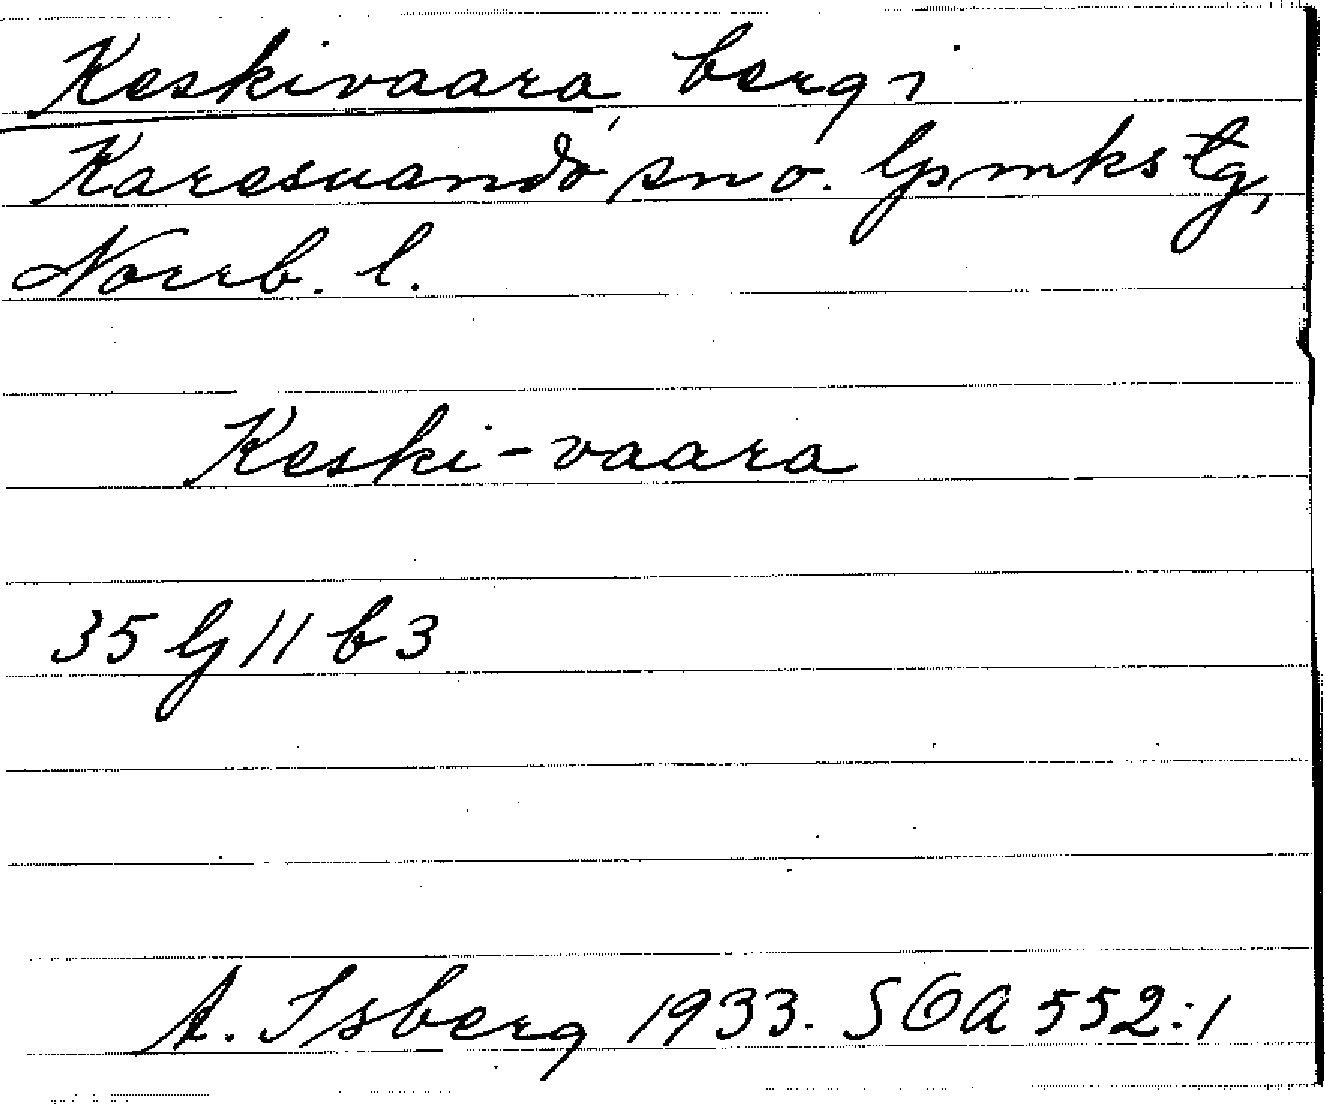 Keskivaara, berg i
Karesuando sn o. lpmks tg,
Norrb. l.
Keski-vaara
35 lj 11 b 3
A. Isberg 1933. SOA 552:1